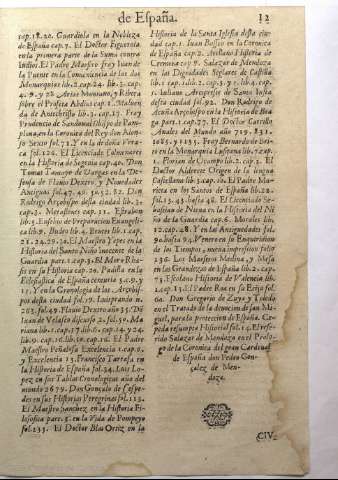 de España. 12
cap. 18. 20. Guardiola en la Nobleza
de España cap. 7. El Doctor Figuerola
en la primera parte de la Suma contra
Indios. El Padre Maestro fray Juan de
la Puente en la Conveniencia de las dos
Monarquias lib. 2. cap. 24. lib. 3. cap.
4. 9. y 22. Arias Montano, y Ribera
sobre el Profeta Abdias cap. 1. Maluen-
da de Antechristo lib. 3. cap. 13. Fray
Prudencio de Sandoval Obispo de Pam-
plona, en la Coronica del Rey don Alon-
so Sexto fol. 71. Y en la de doña Vrra-
ca fol. 126. El Licenciado Colmenares
en la Historia de Segouia cap. 40. Don
Tomas Tamayo de Vargas en la De-
fensa de Flauio Dextro, y Nouedades
Antiguas fol. 47. 51. 52. 82. Don
Rodrigo Arçobispo desta ciudad lib. 3.
cap. 3. Morales cap. 11. Estrabon
lib. 5. Eusebio de Preparacion Euangeli-
ca lib. 9. Budeo lib. 4. Brutes lib. 1. cap.
21. 24. 29. 30. El Maestro Yepes en la
Historia del Santo Niño Inocente de la
Guardia cap. 2. cap. 3. El Moro Rha-
sis en su Historia cap. 20. Padilla en la
Eclesiastica de España centuria 3. c. 9. y
11. Y en la Coronologia de los Arçobis-
pos desta ciudad fol. 19. Luitprando n.
203. fol. 497. Flauio Dextro año 35. Di
Juan de Velasco discurso 2. fol. 50. Ma
riana lib. 1. cap. 17. lib. 6. cap. 14. y 24.
lib. 9. cap. 16. lib. 10. cap. 16. El Padre
Maestro Peñalosa Excelencia 1. cap. 6.
y Excelencia 13. Francisco Tarrafa en
la Historia de España fol. 34. Luis Lo-
pez en sus Tablas Cronologicas año del
mundo 2679. Don Gonçalo de Cespe-
des en sus Historias Peregrinas fol. 113.
El Maestro Sanchez en la Historia Fi-
losofica part. 5. en la Vida de Pompeyo
fol. 233. El Doctor Blas Ortiz en la
Historia de la Santa Iglesia desta ciu-
dad cap. 1. Juan Bosseo en la Coronica
de España cap. 2. Arelano Historia de
Cremona cap. 9. Salazar de Mendoza
en las Dignidades Seglares de Castilla
lib. 1. cap. 1. cap. 3. cap. 4. lib. 2. cap.
1. Juliano Arcipreste de Santa Yusta
desta ciudad fol. 92. Don Rodrigo de
Acuña Arçobispo en la Historia de Bra-
ga part. 1. cap. 77. El Doctor Carrillo
Anales del Mundo año 719. 831.
1085. y 1135. Fray Bernardo de Bri-
to en la Monarquia Lusitana lib. 2. cap.
1. Florian de Ocampo lib. 2. cap. 3. El
Doctor Alderete Origen de la lengua
Castellana lib. 3. cap. 10. El Padre Ma-
rieta en los Santos de España lib. 22.
fol. 15. 43. hasta 48. El Licenciado Se-
bastian de Nieua en la Historia del Ni
ño de la Guardia cap. 6. Morales lib.
12. cap. 48. Y en las Antiguedades fol.
90. hasta 94. Venero en su Enquiridion
de los Tiempos, nueua impression folio
236. Los Maestros Medina, y Mesa
en las Grandezas de España lib. 2. cap.
73. Escolano Historia de Valencia lib.
1. cap. 13. El Padre Roa en su Ecija fol.
60. Don Gregorio de Zuyo y Toledo
en el Tratado de la deuocion de san Mi-
guel, para la proteccion de España. Ces-
peda resumpta Historial fol. 14. El refe-
rido Salazar de Mendoza en el Prolo-
go de la Coronica del gran Cardenal
de España don Pedro Gon-
çalez de Men-
doza.
CIV.